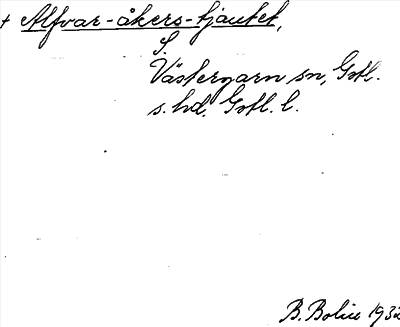 + Alfvar-åkers-tjautet,
S.
Västergarn sn, Gotl.
s. hd. Gotl. l.
B. Bolin 1932